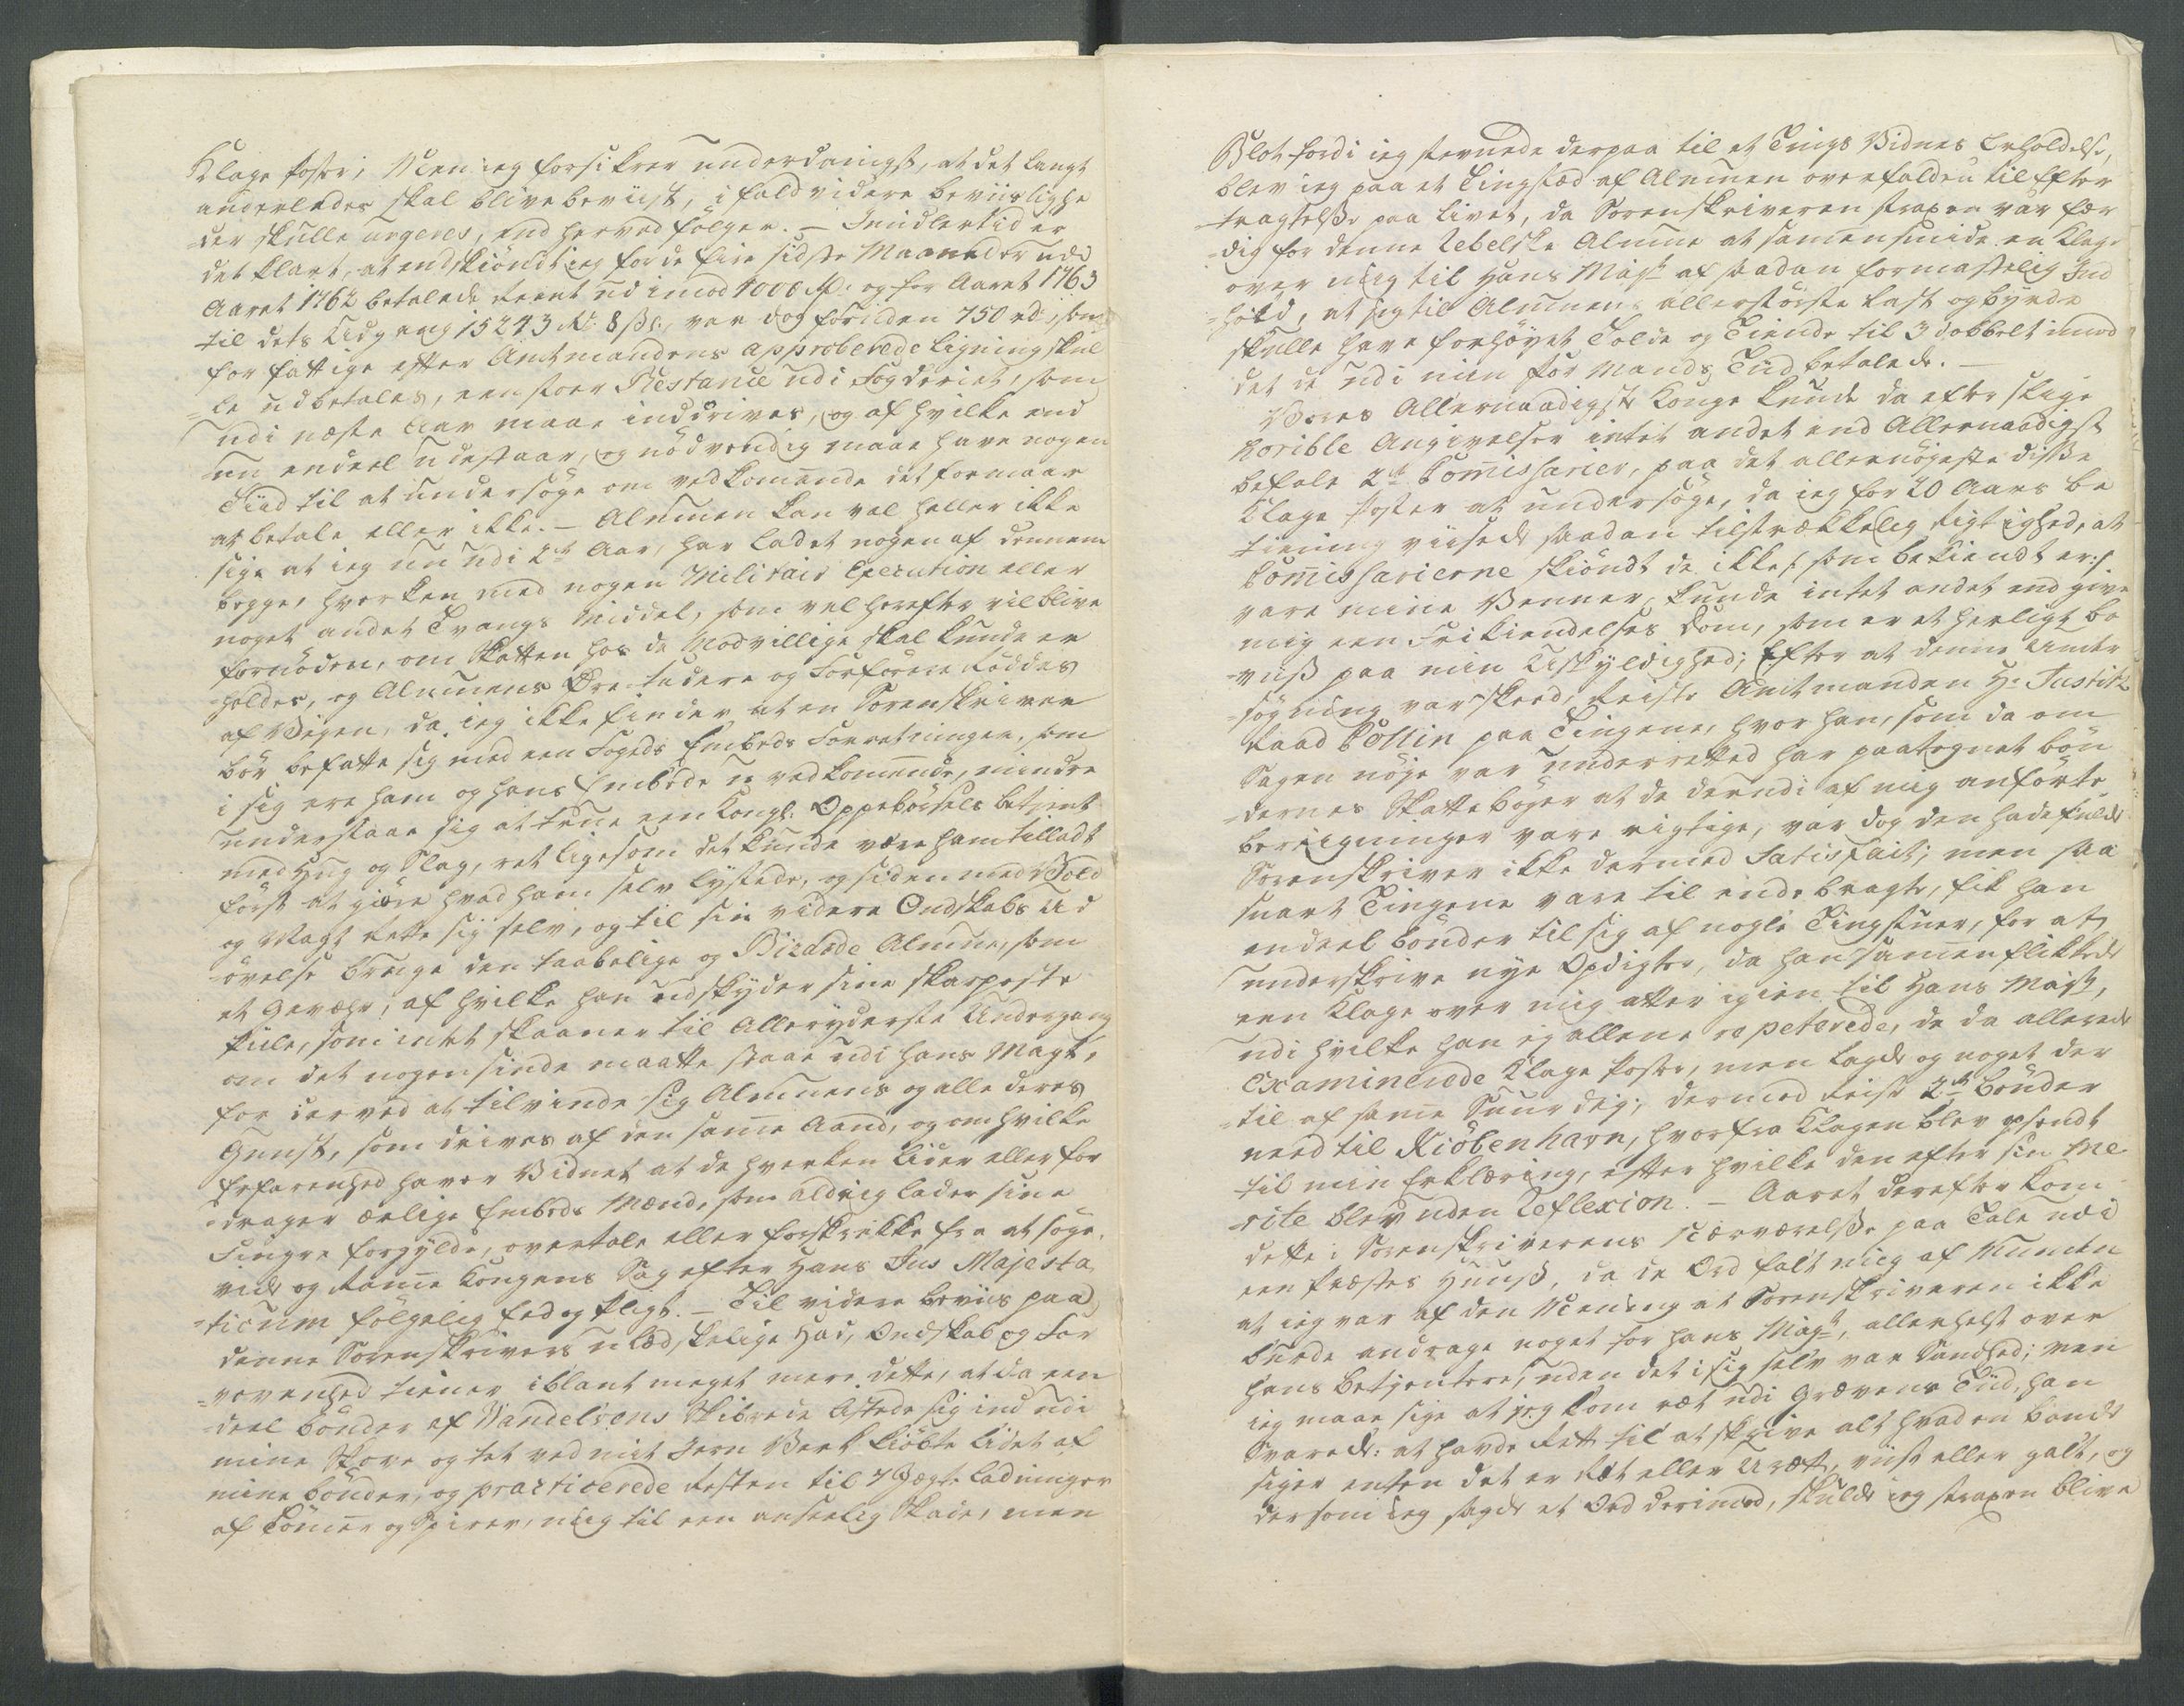 Klage poster; Men ieg forsikrer underdanigst, at det langt
anderledes skal blive beviist, i fald videre beviislighe
-der skulle urgeres, end herved følger. — Imidlertid er
det klart, at endskiøndt ieg for de fire sidste Maaneder udi
Aaret 1762 betalede Reent ud imod 1000 rd: og for Aaret 1763
til dets Udgang 15243 rd: 8 sk:, var dog foruden 750 rd: som
for fattige efter Amtmandens approberede Ligning skul
-le udbetales, een stoer Restance udi Fogderiet, som
udi næste Aar maae inddrives, og af hvilke end
nu endeel udestaar, og nødvendig maae have nogen
Tiid til at undersøge om vedkommende det formaar
at betale eller ikke. — Almuen kan vel heller ikke
sige at ieg nu udi 2de Aar, har ladet nogen af dennem
bryge, hverken med nogen Militair Execution eller
noget andet Tvangs Middel, som vel herefter vil blive
fornøden, om Skatten hos de Modvillige skal kunde er
-holdes, og Almuens Ære-tudere og Forførere Røddes
af Veyen, da ieg ikke finder at en Sorenskriver
bør befatte sig med een Fogeds Embeds Forretninger, som
i sig ere ham og hans Embede uvedkommende, mindre
understaae sig at true een Kongl: Oppebørsels betient
med Hug og Slag, ret ligesom det kunde være ham tilladt
først at giøre hvad ham selv lystede, og siden med Vold
og Magt Rette sig selv, og til sin videre Ondskabs Ud
-øvelse bruge den taabelige og Bizarde Almue, som
et Geværh, af hvilke han udskyder sine skarpeste
Piile, som intet skaaner til Alleryderste Undergang
om det nogensinde maatte staae udi hans Magt,
for derved at tilvinde sig Almuens og alle deres
Gunst, som drives af den samme Aand, og om hvilke
Erfarenhed haver Vidnet at de hverken lider eller for
-drager ærlige Embeds Mænd, som aldrig lader sine
Fingre forgylde, overtale eller forskrække fra at søge,
vide og Ramme Kongens Sag efter Hans Jus Majesta
-ticum følgelig Eed og Pligt. — Til videre beviis paa
denne Sorenskrivers ulædskelige Had, Ondskab og For
-vovenhed tiener iblant meget mere dette, at da een
deel bønder af Wandelsens Skibrede listede sig ind udi
mine Skove og tet ved mit Jern Verk kiøbte lidet af
mine bønder, og practicerede Resten til 7 Jægte Ladninger
af Tømmer og Spirer, mig til een anseelig Skade, men
Blot fordi ieg stevnede derpaa til et Tings Vidnes Erholdelse,
blev ieg paa et Tingsted af Almuen overfalden til Efter
-tragtelse paa Livet, da Sorenskriveren straxen var fær
-dig for denne Rebelske Almue at sammensmide en Klage
over mig til Hans Maj:t af saadan formastelig Ind
-hold, at ieg til Almuens allerstørste Last og byrde
skulle have forhøyet Tolde og Tiende til 3 dobbelt imod
det de udi min For Mands Tiid betalede. —
Vores Allernaadigste Konge kunde da efter slige
horible Angivelser intet andet end Allernaadigst
befale 2de Commissarier, paa det allernøjeste disse
Klage poster at undersøge, da ieg for 20 Aars be
-tiening viisede saadan tilstrækkelig Rigtighed, at
Commissarierne skiøndt de ikke /: som bekiendt er :/
vare mine Venner, kunde intet andet end give
mig een Frikiendelses Dom, som er et herligt be
-viis paa min Uskyldighed; Efter at denne Under
-søgning var skeed, Reiste Amtmanden Hr. Justitz
Raad Collin paa Tingene, hvor han, som da om
Sagen nøje var underretted har paategnet bøn
-dernes Skattebøger at de derudi af mig anførte
beregninger vare rigtige, var dog den hadefulde
Sorenskriver ikke dermed Satisfait; men saa
snart Tingene vare til ende bragte, fik han
endeel bønder til sig af nogle Tingstuer, for at
underskrive nye Opdigter, da han sammenflikkede
een Klage over mig atter igien til Hans Maj:t,
udi hvilke han ej allene repeterede, de da allerede
Examinerede Klage poster, men lagde og noget der
-til af samme Suur deig; dermed Reise 2de bønder
need til Kiøbenhavn, hvorfra Klagen blev ofsendt
til min Erklæring, efter hvilke den efter sin Me
-rite blev uden Reflexion. — Aaret derefter kom
dette i Sorenskriverens Nærværelse paa Tale udi
een Præstes Huus, da de Ord falt mig af Munden
at ieg var af den Mening at Sorenskriveren ikke
burde andrage noget for Hans Maj:t, allerhelst over
Hans betientere, uden det i sig selv var Sandhed; men
ieg maae sige at jeg kom ræt udi Grævens Tiid, han
Svarede: at havde Rett til at skrive alt hvad en bonde
siger enten det er Ræt eller Uræt, viist eller galt, og
dersom ieg sagde et Ord derimod, skulde ieg straxen blive